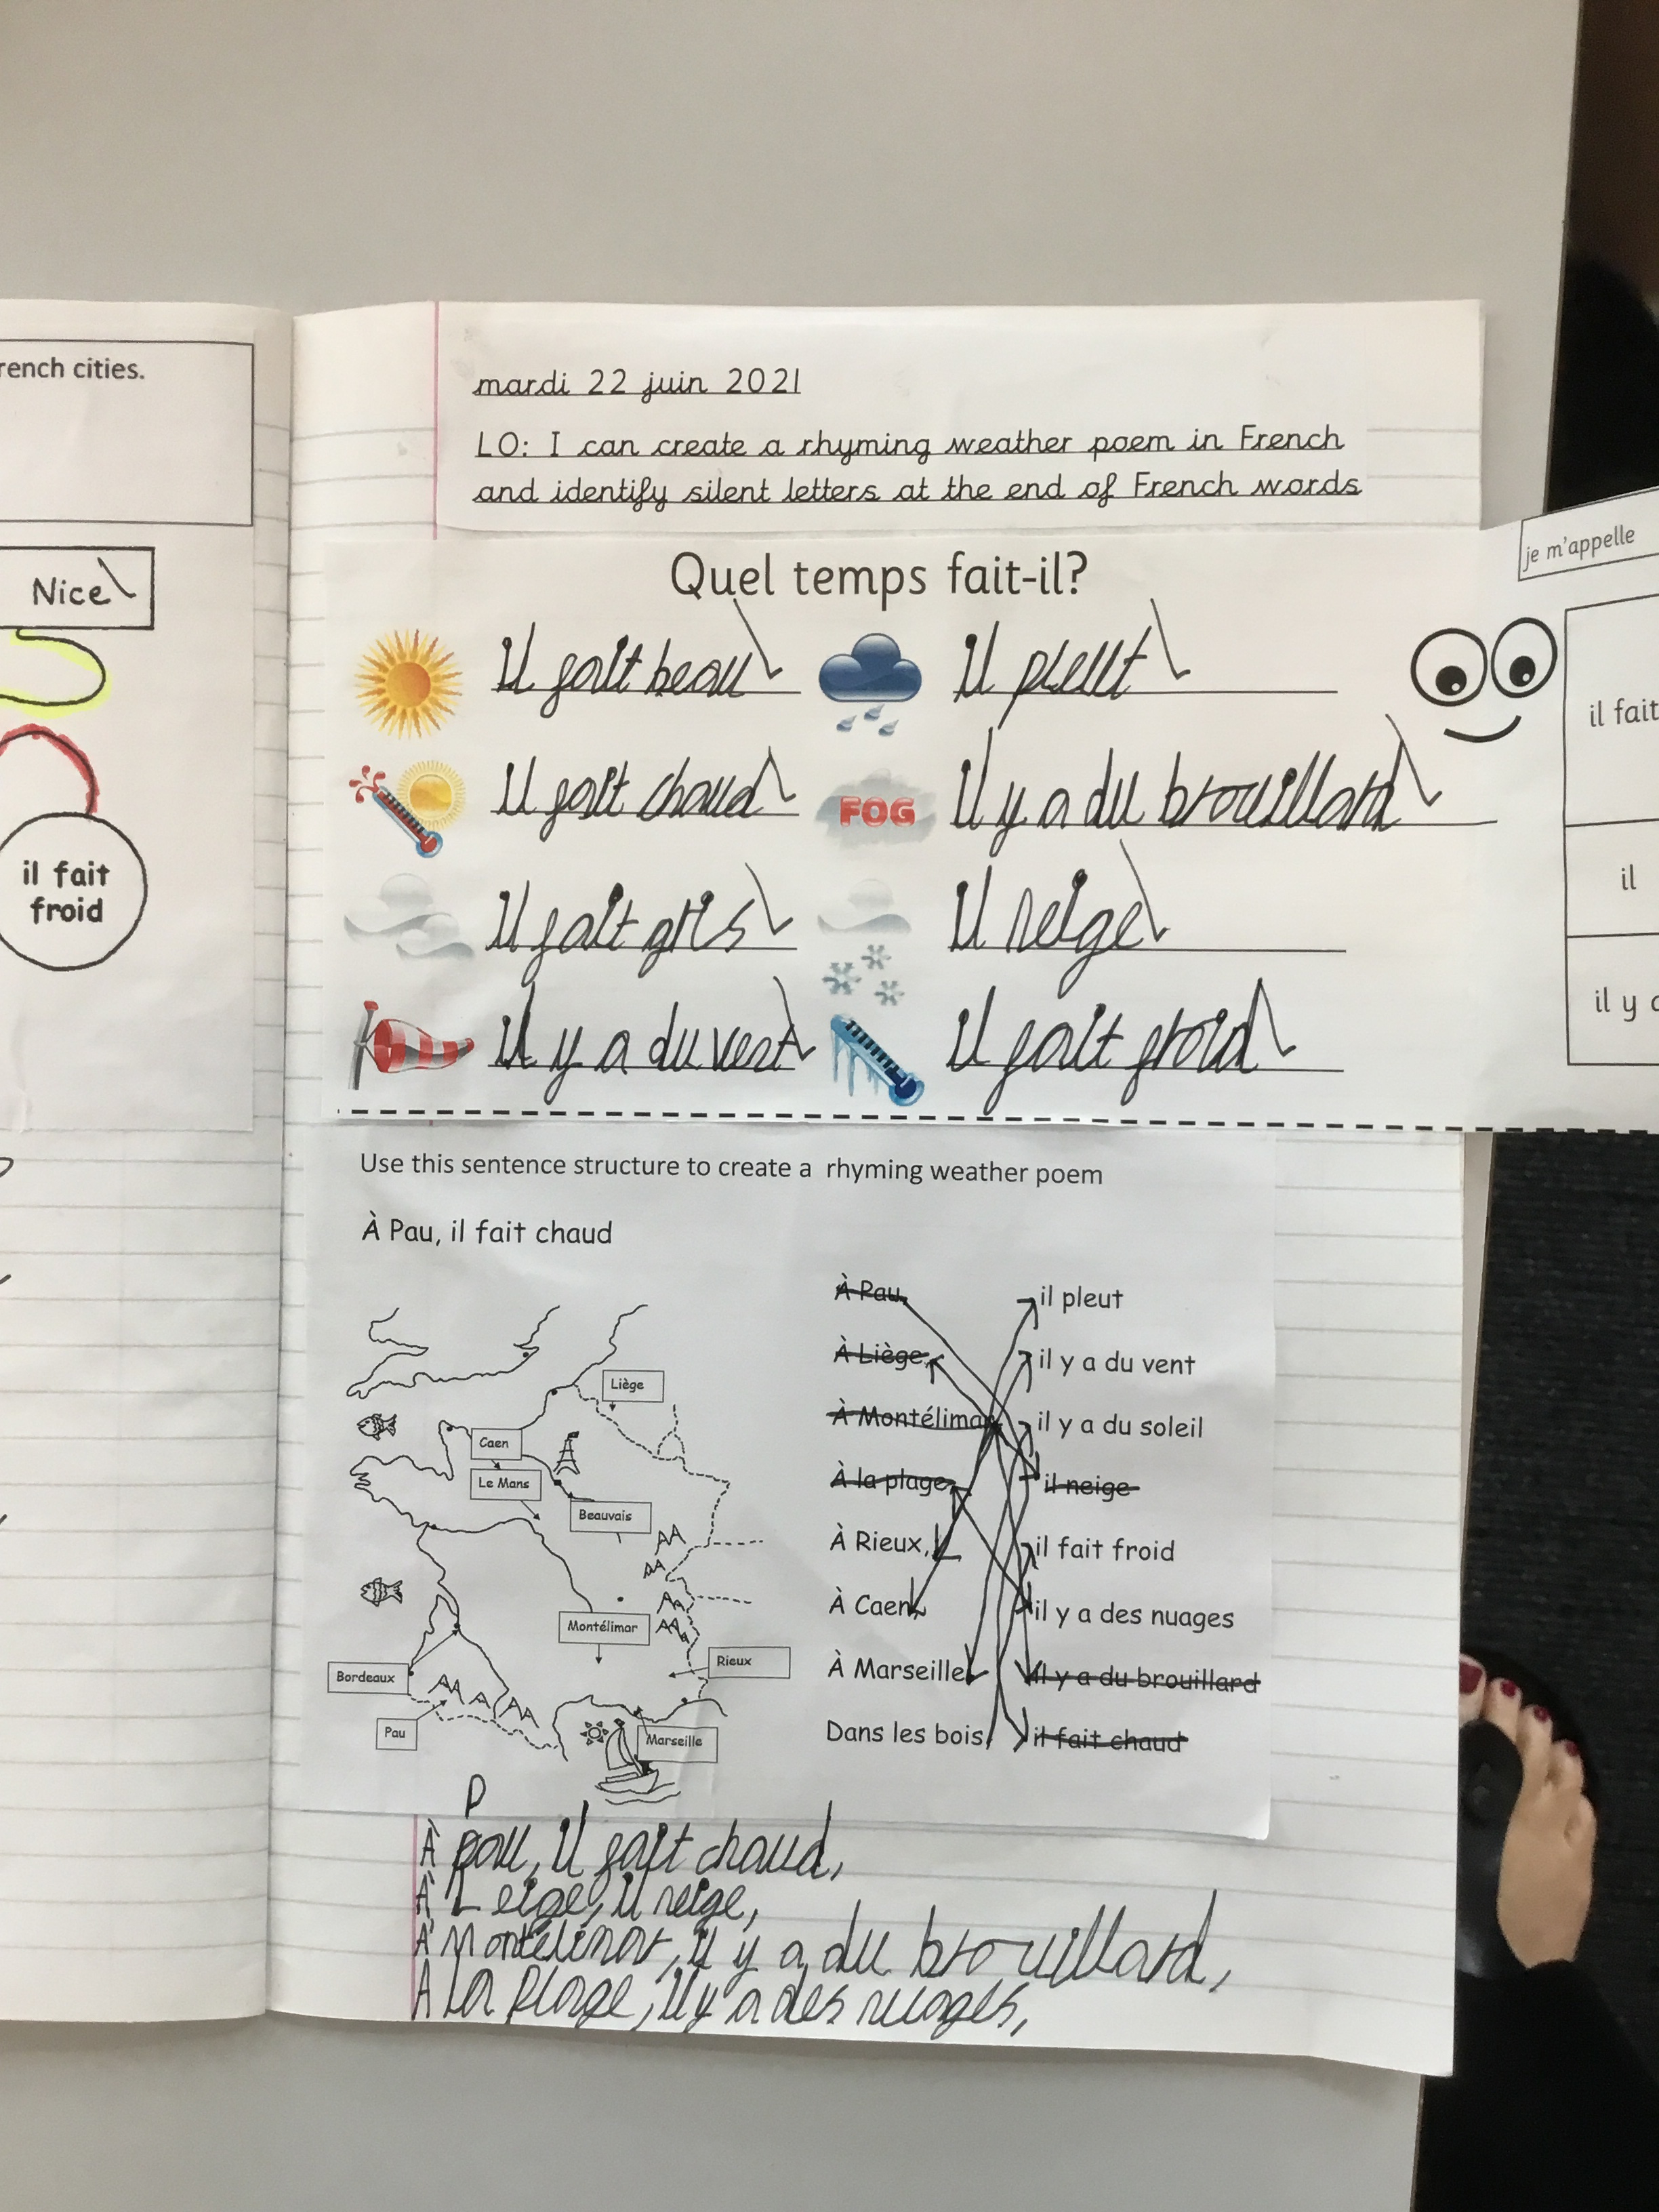 rench cities.
Nice
il fait
froid
mardi 22 juin 2021
LO: I can create a rhyming weather poem in French
and identify silent letters at the end of French words
Quel temps fait-il?
il fait beau
il pleut
il fait chaud
FOG
il y a du brouillard
il fait gris
il neige
il y a du vent
il fait froid
je m'appelle
il fait
il
il y a
Use this sentence structure to create a rhyming weather poem
À Pau, il fait chaud
Liège
Caen
Le Mans
Beauvais
Montélimar
Rieux
Bordeaux
Pau
Marseille
À Pau,
il pleut
À Liège,
il y a du vent
À Montélimar
il y a du soleil
À la plage,
il neige
À Rieux,
il fait froid
À Caen,
il y a des nuages
À Marseille
il y a du brouillard
Dans les bois,
il fait chaud
P
À pau, il fait chaud,
À Leige, il neige,
À Montélimar, il y a du brouillard,
À la plage, il y a des nuages,